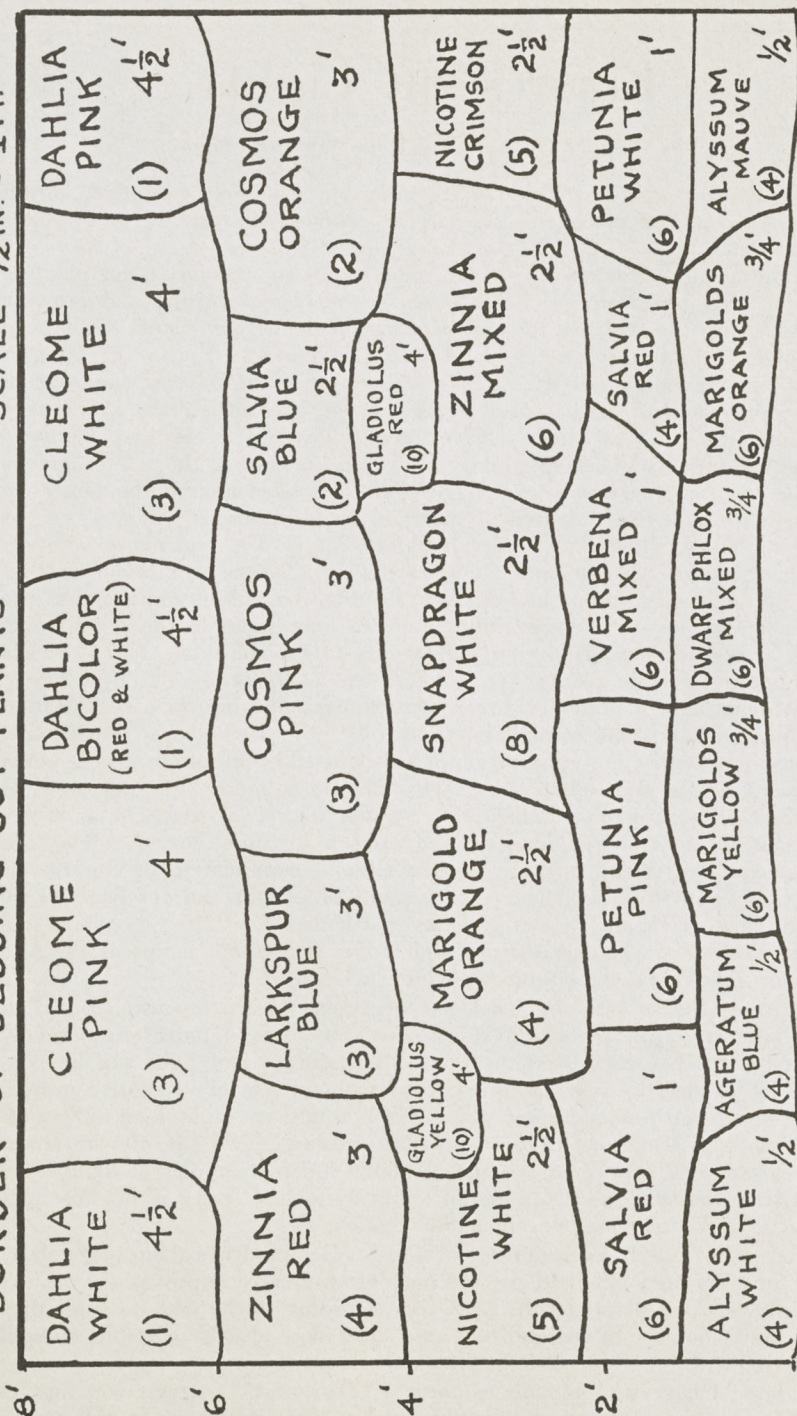 BORDER OF BEDDING OUT PLANTS
SCALE ½ IN. = 1 FT.
8'
DAHLIA
WHITE
(1) 4½'
CLEOME
PINK
(3) 4'
DAHLIA
BICOLOR
(RED & WHITE)
(1) 4½'
CLEOME
WHITE
(3) 4'
DAHLIA
PINK
(1) 4½'
6'
ZINNIA
RED
(4) 3'
LARKSPUR
BLUE
(3) 3'
COSMOS
PINK
(3) 3'
SALVIA
BLUE
(2) 2½'
COSMOS
ORANGE
(2) 3'
4'
NICOTINE
WHITE
(5) 2½'
GLADIOLUS
YELLOW
(10) 4'
MARIGOLD
ORANGE
(4) 2½'
SNAPDRAGON
WHITE
(8) 2½'
GLADIOLUS
RED
(10) 4'
ZINNIA
MIXED
(6) 2½'
NICOTINE
CRIMSON
(5) 2½'
2'
SALVIA
RED
(6) 1'
PETUNIA
PINK
(6) 1'
VERBENA
MIXED
(6) 1'
SALVIA
RED
(4) 1'
PETUNIA
WHITE
(6) 1'
ALYSSUM
WHITE
(4) ½'
AGERATUM
BLUE
(4) ½'
MARIGOLDS
YELLOW
(6) ¾'
DWARF PHLOX
MIXED
(6) ¾'
MARIGOLDS
ORANGE
(6) ¾'
ALYSSUM
MAUVE
(4) ½'